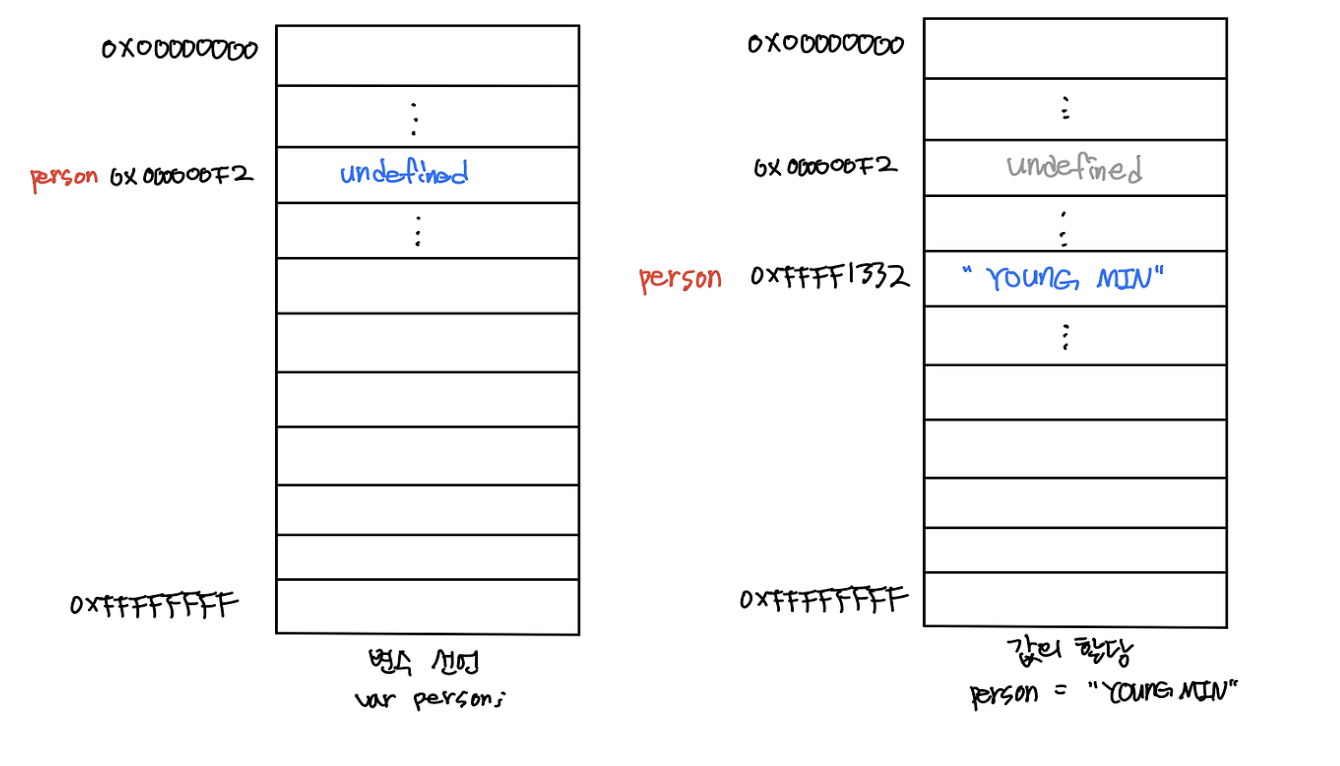 0x00000000
⋮
person 0x000000F2 undefined
⋮
0xFFFFFFFF
변수 선언
var person;
0x00000000
⋮
0x000000F2 undefined
⋮
person 0xFFFF1332 "YOUNG MIN"
⋮
0xFFFFFFFF
값의 할당
person = "YOUNG MIN"